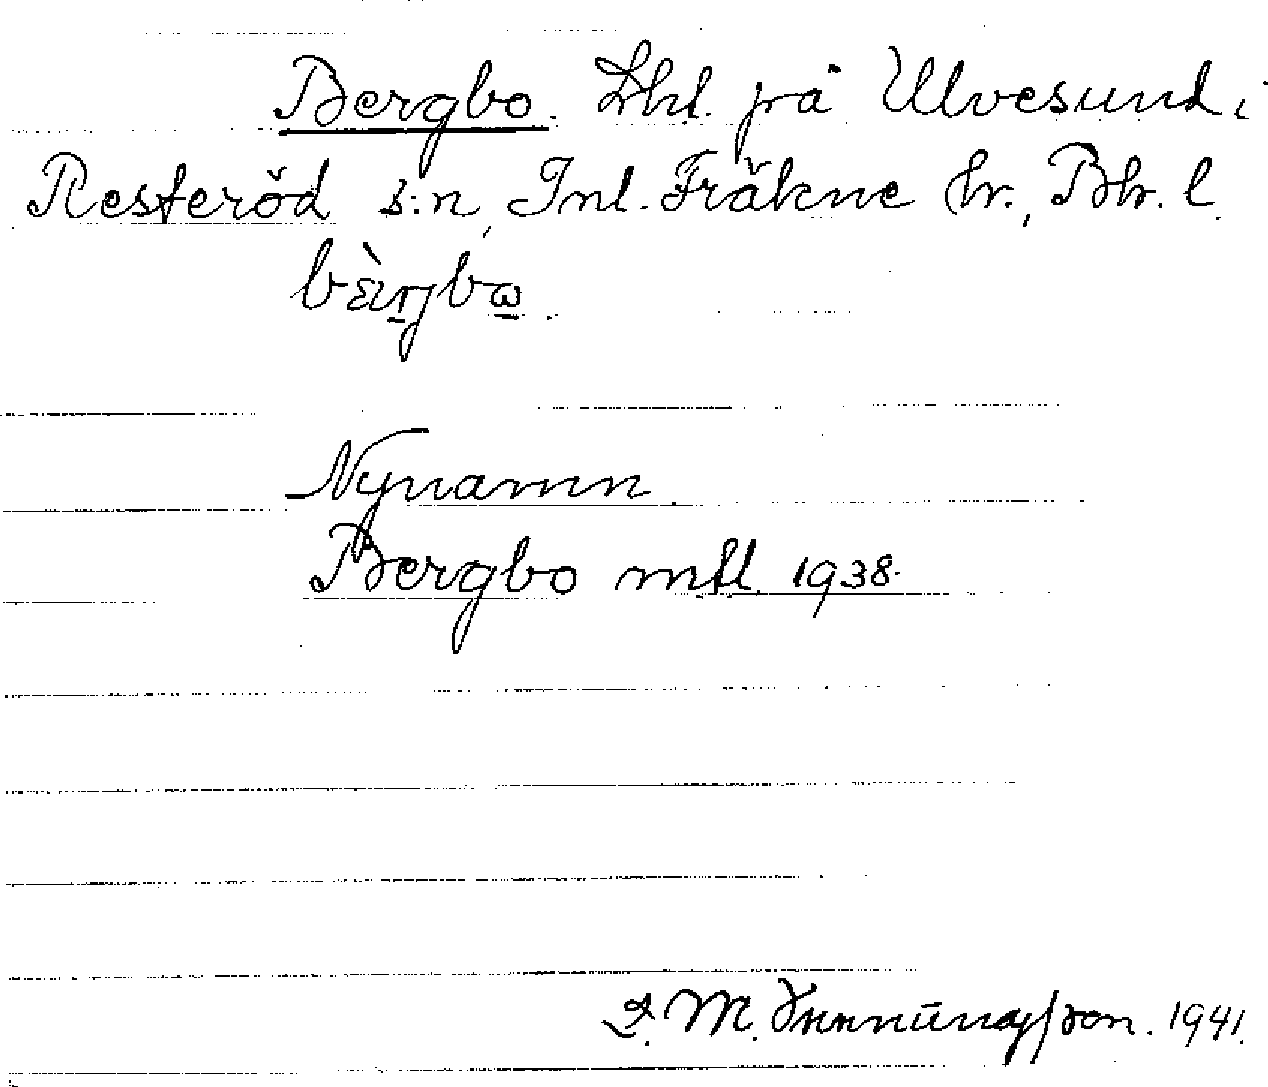 Bergbo. Lht. på Ulvesund i
Resteröd s:n, Inl. Fräkne hr., Bh. l.
Nynamn.
Bergbo mtl. 1938.
M. 1941.